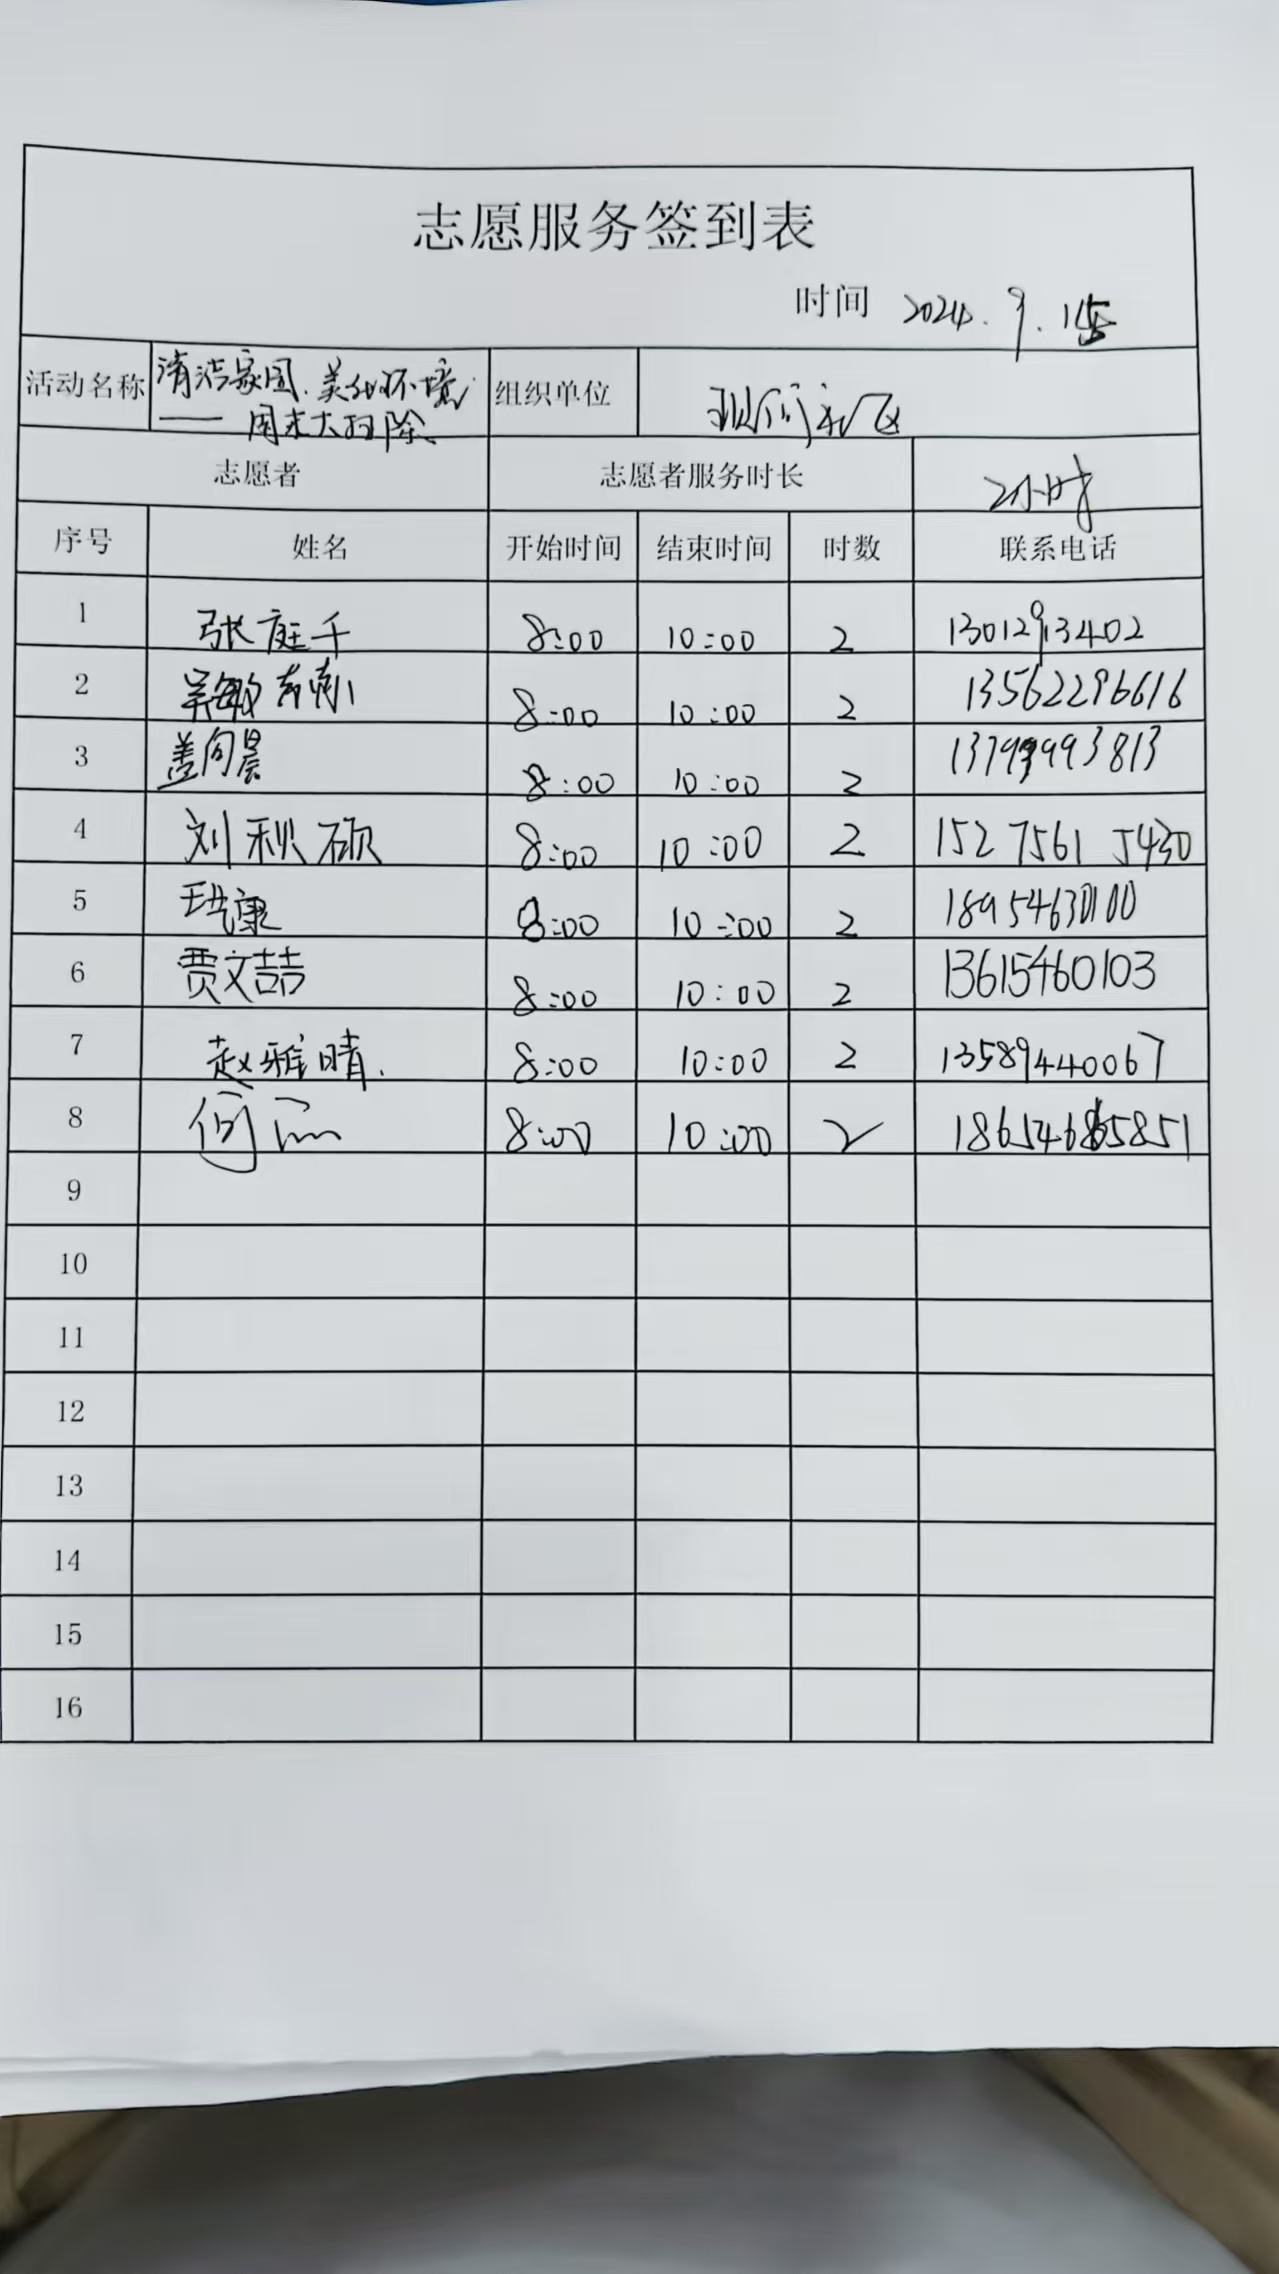 志愿服务签到表
时间 2024.9.15
活动名称 清洁家园.美化环境 组织单位
—— 周末大扫除
志愿者 志愿者服务时长 2小时
序号 姓名 开始时间 结束时间 时数 联系电话
1 张庭千 8:00 10:00 2 13012913402
2 8:00 10:00 2 13562296616
3 盖向晨 8:00 10:00 2 13793993813
4 刘秋硕 8:00 10:00 2 152 7561 5430
5 8:00 10:00 2 18954630100
6 贾文喆 8:00 10:00 2 13615460103
7 赵雅晴. 8:00 10:00 2 13589440067
8 何 8:00 10:00 2
9
10
11
12
13
14
15
16